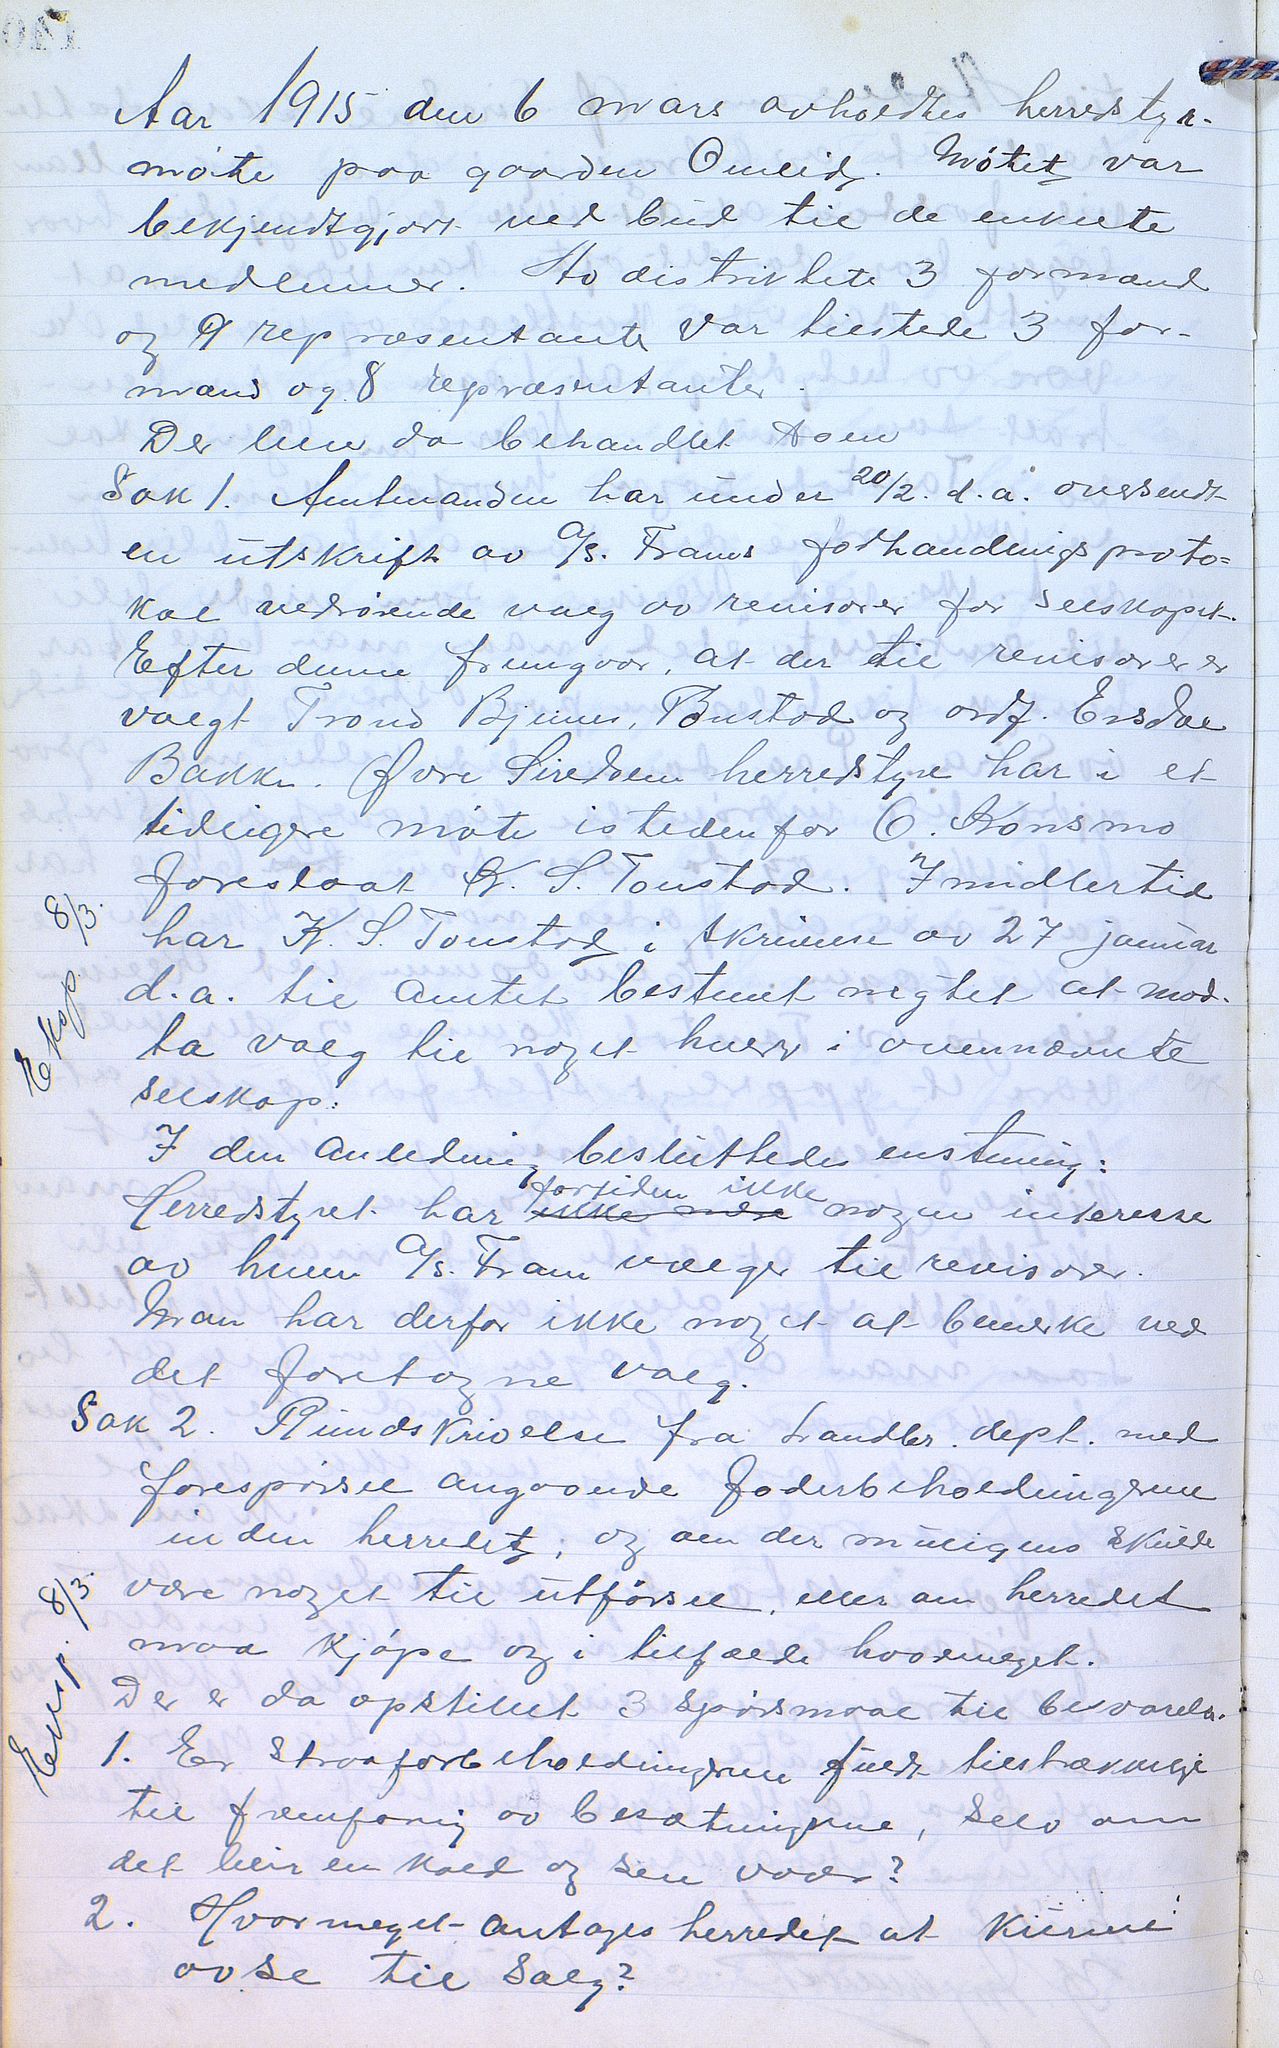 Aar 1915 den 6 mars avholdtes herredstyr-
møte paa gaarden Omeid. Møtet var
bekjendtgjort ved bud til de enkelte
medlemmer. Av distriktets 3 formænd
og 9 repræsentanter var tilstede 3 for-
mænd og 8 repræsentanter.
Der blev da behandlet som
Sak 1. Amtmanden har under 20/2. d.a. oversendt
en utskrift av A/S. Frams forhandlingsproto=
kol vedrørende valg av revisorer for selskapet.
Efter denne fremgaar, at der til revisorer er
valgt Trond Bjunes, Bustad og ordf. Ersdal
Bakke. Øvre Siredalen herredstyre har i et
tidligere møte istedenfor O. Konsmo
foreslaat K. S. Tonstad. Imidlertid
har K. S. Tonstad i skrivelse av 27 januar
d.a. til amtet bestemt negtet at mod-
ta valg til noget hverv i ovennævnte
selskap.
Eksp. 8/3.
I den anledning besluttedes enstemmig:
fortiden ikke
Herredstyret har ikke nogen interesse
av hvem A/S. Fram vælger til revisorer.
Man har derfor ikke noget at bemerke ved
det foretagne valg.
Sak 2. Rundskrivelse fra Landbr. dept. med
forespørsel angaaende foderbeholdningerne
inden herredet; og om der muligens skulde
være noget til utførsel, eller om herredet
maa kjøpe og i tilfælde hvormeget.
Eksp. 8/3.
Der er da opstillet 3 spørsmaal til besvarelse.
1. Er straaforbeholdningerne fuldt tilstrækkelige
til fremforing av besætningerne, selv om
det blir en kold og sen vaar?
2. Hvormeget antages herredet at kunne
avse til salg?